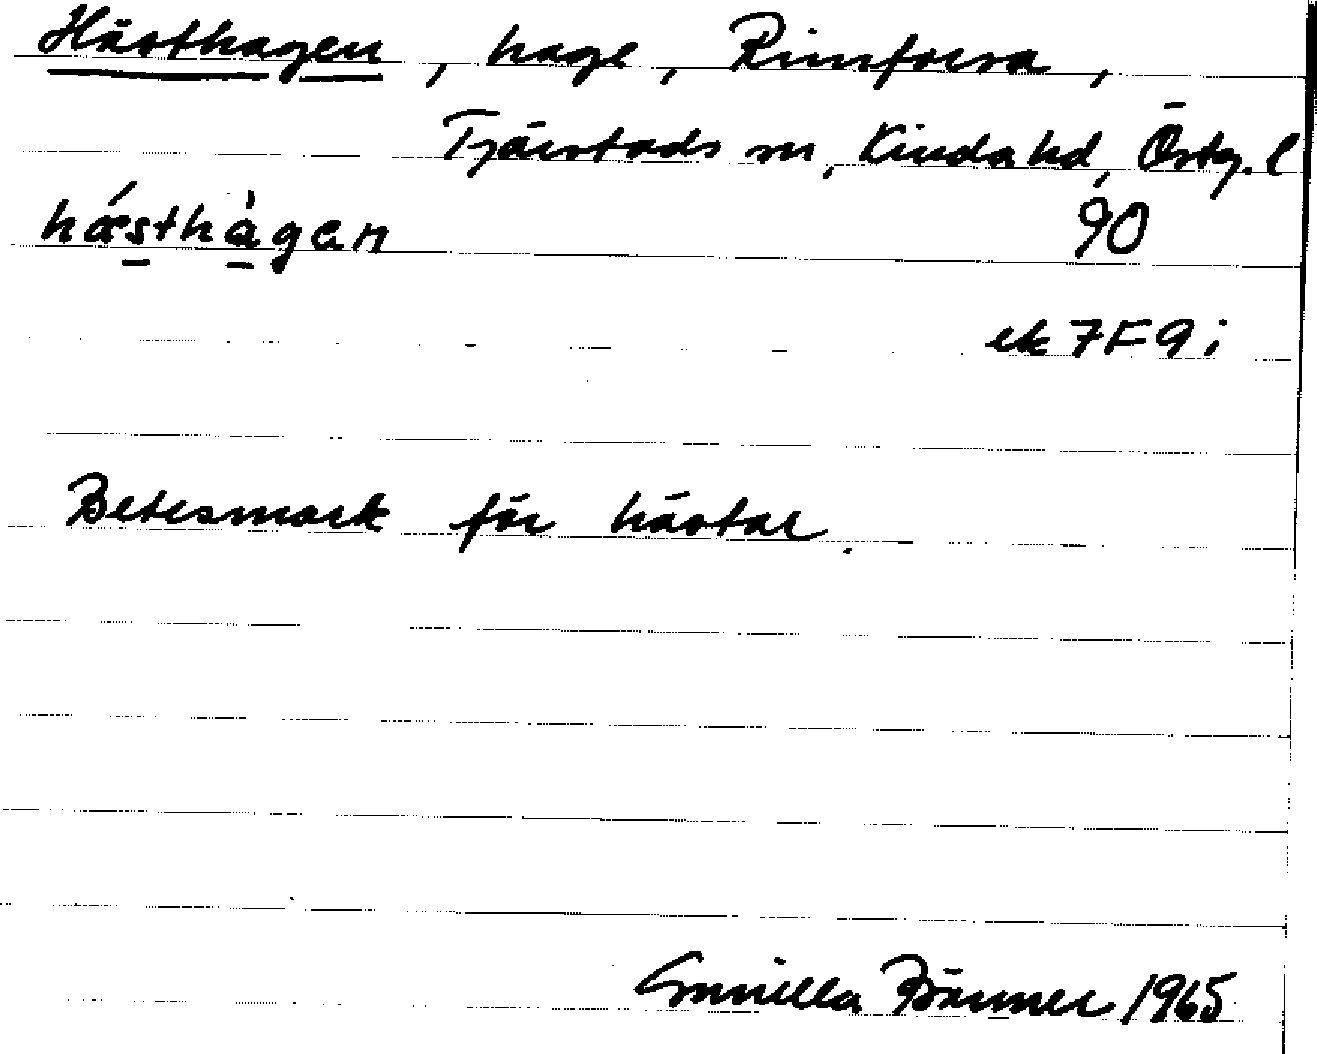 Hästhagen, hage, Rimforsa,
Tjärstads sn, Kinda hd, Östg. l
hǽs̠thà̠gən 90
ek 7F9i
Betesmark för hästar.
Gunilla Bänner 1965